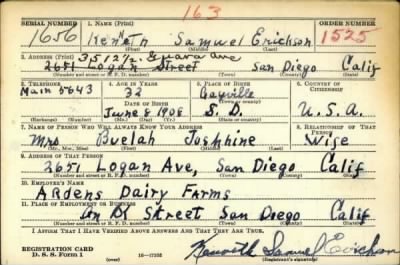 163
SERIAL NUMBER 1. NAME (Print) ORDER NUMBER
1656 Kenneth Samuel Erickson 1525
(First) (Middle) (Last)
2. ADDRESS (Print) 3512½ Ave
2651 Logan Street San Diego Calif
(Number and street or R. F. D. number) (Town) (County) (State)
3. TELEPHONE 4. AGE IN YEARS 5. PLACE OF BIRTH 6. COUNTRY OF CITIZENSHIP
Main 5643 32 Gayville
DATE OF BIRTH (Town or county)
June 6 1908 S. D. U. S. A.
(Mo.) (Day) (Yr.) (State or country)
7. NAME OF PERSON WHO WILL ALWAYS KNOW YOUR ADDRESS 8. RELATIONSHIP OF THAT PERSON
Mrs Buelah Josphine Wife
(Mr., Mrs., Miss) (First) (Middle) (Last)
9. ADDRESS OF THAT PERSON
2651 Logan Ave, San Diego Calif
(Number and street or R. F. D. number) (Town) (County) (State)
10. EMPLOYER'S NAME
Ardens Dairy Farms
11. PLACE OF EMPLOYMENT OR BUSINESS
Street San Diego Calif
(Number and street or R. F. D. number) (Town) (County) (State)
I AFFIRM THAT I HAVE VERIFIED ABOVE ANSWERS AND THAT THEY ARE TRUE.
REGISTRATION CARD
D. S. S. Form 1 16—17105 Kenneth Samuel Erickson